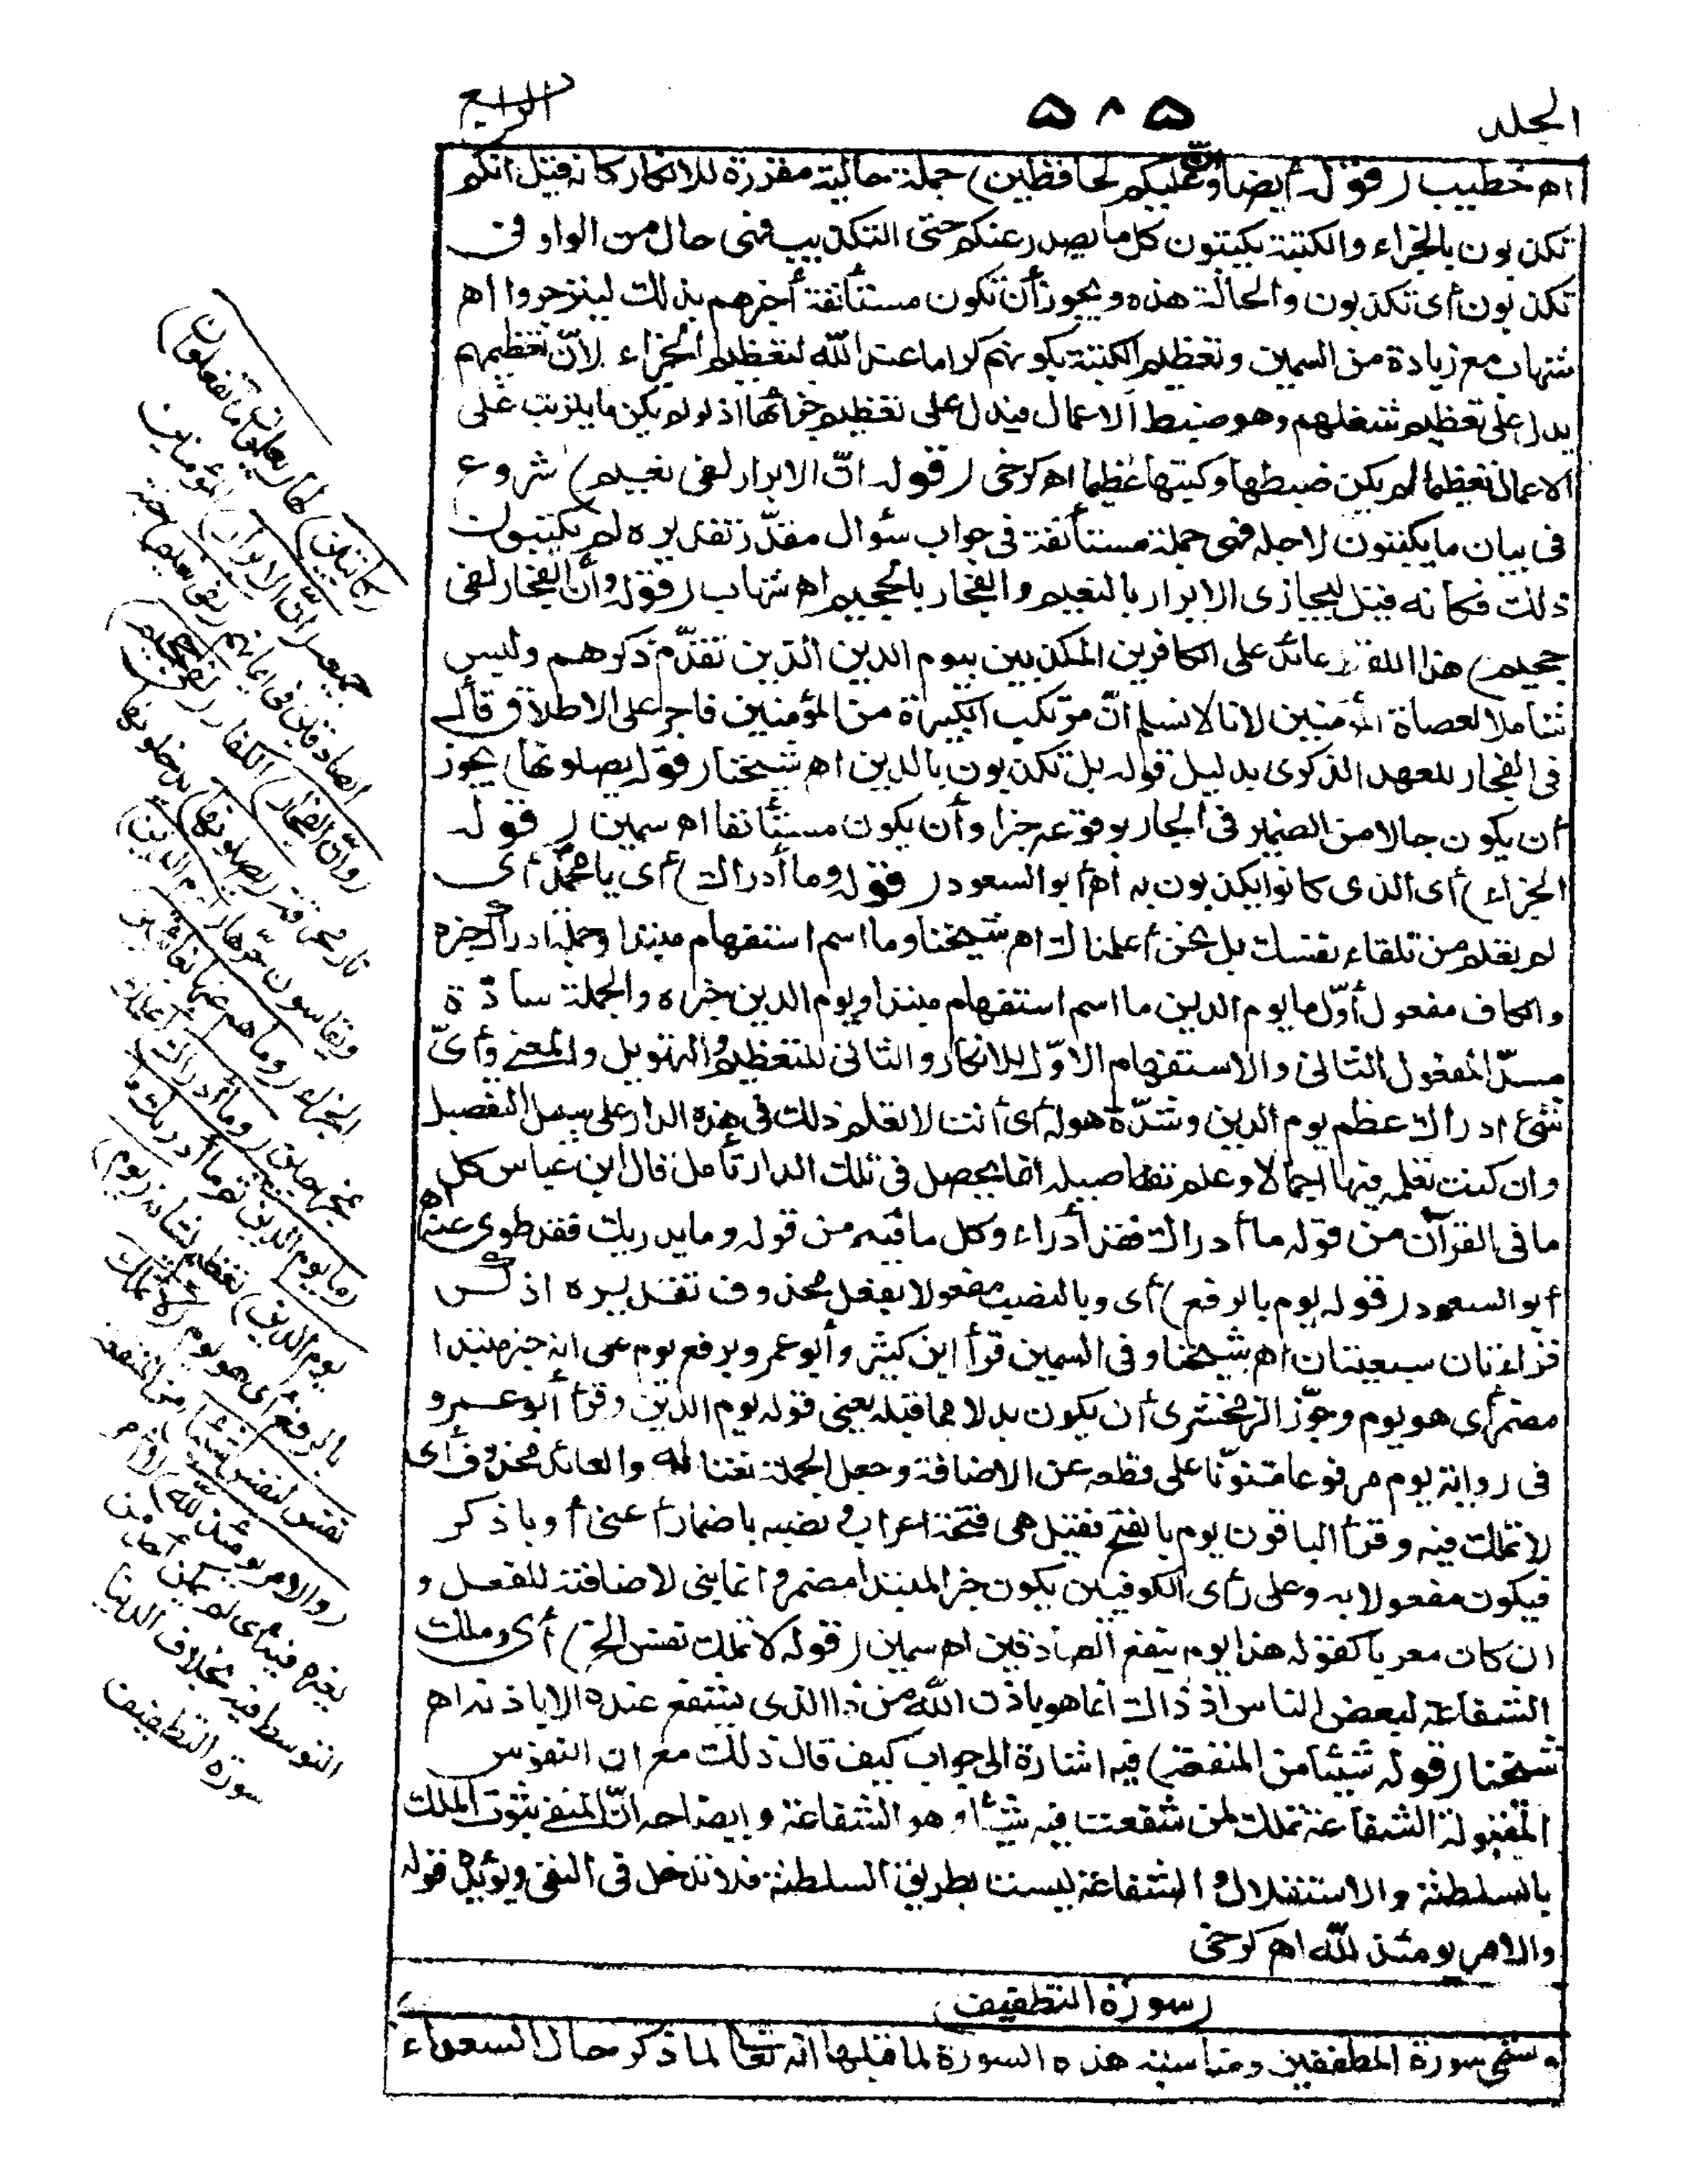 الجلد ۵۸۵ الرابع
اه خطيب (قوله أيضا وإنّ عليكم لحافظين) جملة حالية مقررة للانكار كانه قيل انكم
تكذبون بالجزاء والكتبة يكتبون كل ما يصدر عنكم حتى التكذيب فهي حال من الواو في
تكذبون أى تكذبون والحالة هذه ويجوز أن تكون مستأنفة أخبرهم بذلك لينزجروا اه
شهاب مع زيادة من السمين وتعظيم الكتبة بكونهم كراما عند الله لتعظيم الجزاء لانّ تعظيمهم
يدل على تعظيم شغلهم وهو ضبط الاعمال فيدل على تعظيم جزائها اذ لو لم يكن ما يترتب على
الاعمال تعظيما لم يكن ضبطها وكتبها عظيما اه كرخى (قوله انّ الابرار لفى نعيم) شروع
فى بيان ما يكتبون لاجله فهى جملة مستأنفة فى جواب سؤال مقدّر تقديره لم يكتبون
ذلك فكانه قيل ليجازى الابرار بالنعيم والفجار بالجحيم اه شهاب (قوله وأن الفجار لفى
جحيم) هذا اللفظ عائد على الكافرين المكذبين بيوم الدين الذين تقدّم ذكرهم وليس
شاملا لعصاة المؤمنين لانا لا نسلم انّ مرتكب الكبيرة من المؤمنين فاجر على الاطلاق فأل
فى الفجار للعهد الذكرى بدليل قوله بل تكذبون بالدين اه شيخنا (قوله يصلونها) يجوز
أن يكون حالا من الضمير فى الجار لوقوعه خبرا وأن يكون مستأنفا اه سمين (قوله
الجزاء) أى الذى كانوا يكذبون به اه أبو السعود (قوله وما أدراك) أى يا محمّد أى
لم تعلم من تلقاء نفسك بل نحن أعلمناك اه شيخنا وما اسم استفهام مبتدا وجملة ادراك خبره
والكاف مفعول أوّل ما يوم الدين ما اسم استفهام مبتدا ويوم الدين خبره والجملة سادّة
مسدّ المفعول الثانى والاستفهام الاوّل للانكار والثانى للتعظيم والتهويل والمعنى وأىّ
شئ ادراك عظم يوم الدين وشدّة هوله أى أنت لا تعلم ذلك فى هذه الدار على سبيل التفصيل
وان كنت تعلمه فيها اجمالا وعلم تفاصيله انما يحصل فى تلك الدار تأمل قال ابن عباس كل
ما فى القرآن من قوله ما أدراك فقد أدراه وكل ما فيه من قوله وما يدريك فقد طوى عنه اه
أبو السعود (قوله يوم بالرفع) أى وبالنصب مفعولا بفعل محذوف تقديره اذكر
قراءتان سبعيتان اه شيخنا وفى السمين قرأ ابن كثير وأبو عمرو برفع يوم على انه خبر مبتدا
مضمر أى هو يوم وجوّز الزمخشرى أن يكون بدلا مما قبله يعنى قوله يوم الدين وقرأ أبو عمرو
فى رواية يوم مرفوعا منوّنا على قطعه عن الاضافة وجعل الجملة نعتا له والعائد محذوف أى
لا تملك فيه وقرأ الباقون يوم بالفتح فقيل هى فتحة اعراب ونصبه باضمار أعنى أو باذكر
فيكون مفعولا به وعلى رأى الكوفيين يكون خبر المبتدا مضمر وانما بنى لاضافته للفعل و
ان كان معربا كقوله هذا يوم ينفع الصادقين اه سمين (قوله لا تملك نفس الخ) أى وملك
الشفاعة لبعض الناس اذ ذاك انما هو باذن الله من ذا الذى يشفع عنده الا باذنه اه
شيخنا (قوله شيئا من المنفعة) فيه اشارة الى جواب كيف قال ذلك مع ان النفوس
المقبولة الشفاعة تملك لمن شفعت فيه شيئا وهو الشفاعة وايضاحه انّ المنفى ثبوت الملك
بالسلطنة والاستقلال والشفاعة ليست بطريق السلطنة فلا تدخل فى النفى ويؤيده قوله
والامر يومئذ لله اه كرخى
(سورة التطفيف)
وتسمى سورة المطففين ومناسبة هذه السورة لما قبلها انه تعالى لما ذكر حال السعداء
(كاتبين) لها (يعلمون ما تفعلون)
جميعه (انّ الابرار) المؤمنين
الصادقين فى ايمانهم (لفى نعيم) جنة
(وانّ الفجار) الكفار (لفى جحيم)
نار محرقة (يصلونها) يدخلونها
ويقاسون حرّها (يوم الدين)
الجزاء (وما هم عنها بغائبين)
بمخرجين (وما أدراك) أعلمك
(ما يوم الدين ثم ما أدراك ما
يوم الدين) تعظيم لشانه (يوم)
بالرفع أى هو يوم (لا تملك
نفس لنفس شيئا) من المنفعة
(والامر يومئذ لله) لا أمر
لغيره فيه أى لم يمكن أحدا من
التوسط فيه بخلاف الدنيا
سورة التطفيف